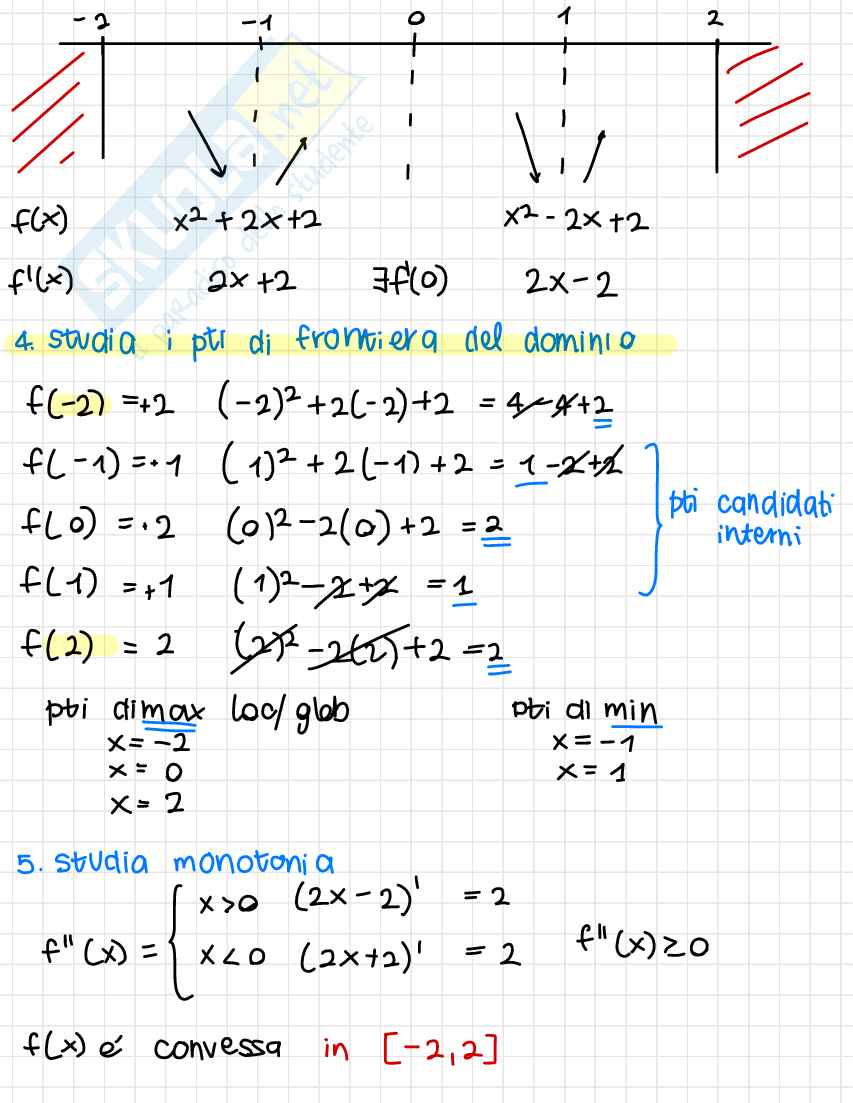 -2 -1 0 1 2
SKUOLA.net
il paradiso dello studente
f(x) x² + 2x + 2 x² - 2x + 2
f'(x) 2x + 2 ∃f'(0) 2x - 2
4. studia i pti di frontiera del dominio
f(-2) = +2 (-2)² + 2(-2) + 2 = 4 - 4 + 2
f(-1) = +1 (1)² + 2(-1) + 2 = 1 - 2 + 2
pti candidati
interni
f(0) = +2 (0)² - 2(0) + 2 = 2
f(1) = +1 (1)² - 2 + 2 = 1
f(2) = 2 (2)² - 2(2) + 2 = 2
pti di max loc/glob pti di min
x = -2 x = -1
x = 0 x = 1
x = 2
5. studia monotonia
x > 0 (2x - 2)' = 2
f''(x) = { f''(x) ≥ 0
x < 0 (2x + 2)' = 2
f(x) é convessa in [-2, 2]